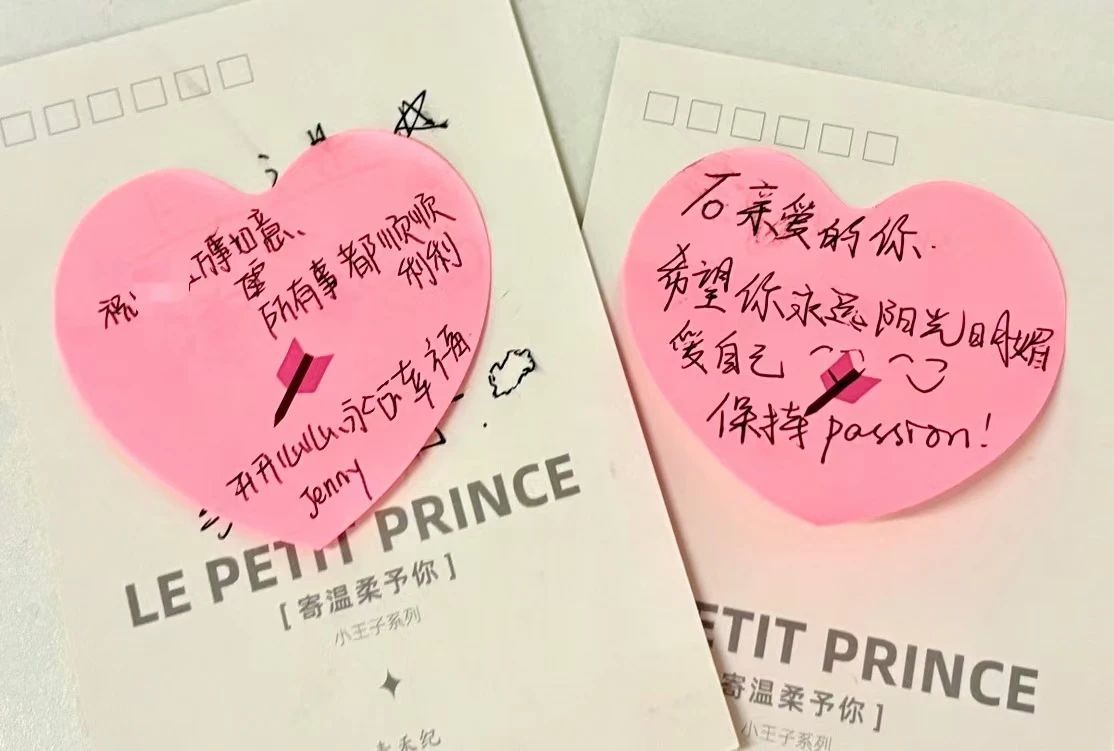 祝 万事如意、
所有事都顺顺
利利
开开心心、永远幸福
Jenny
LE PETIT PRINCE
[寄温柔予你]
小王子系列
亲爱的你
希望你永远阳光明媚
爱自己
保持passion!
ETIT PRINCE
寄温柔予你]
小王子系列